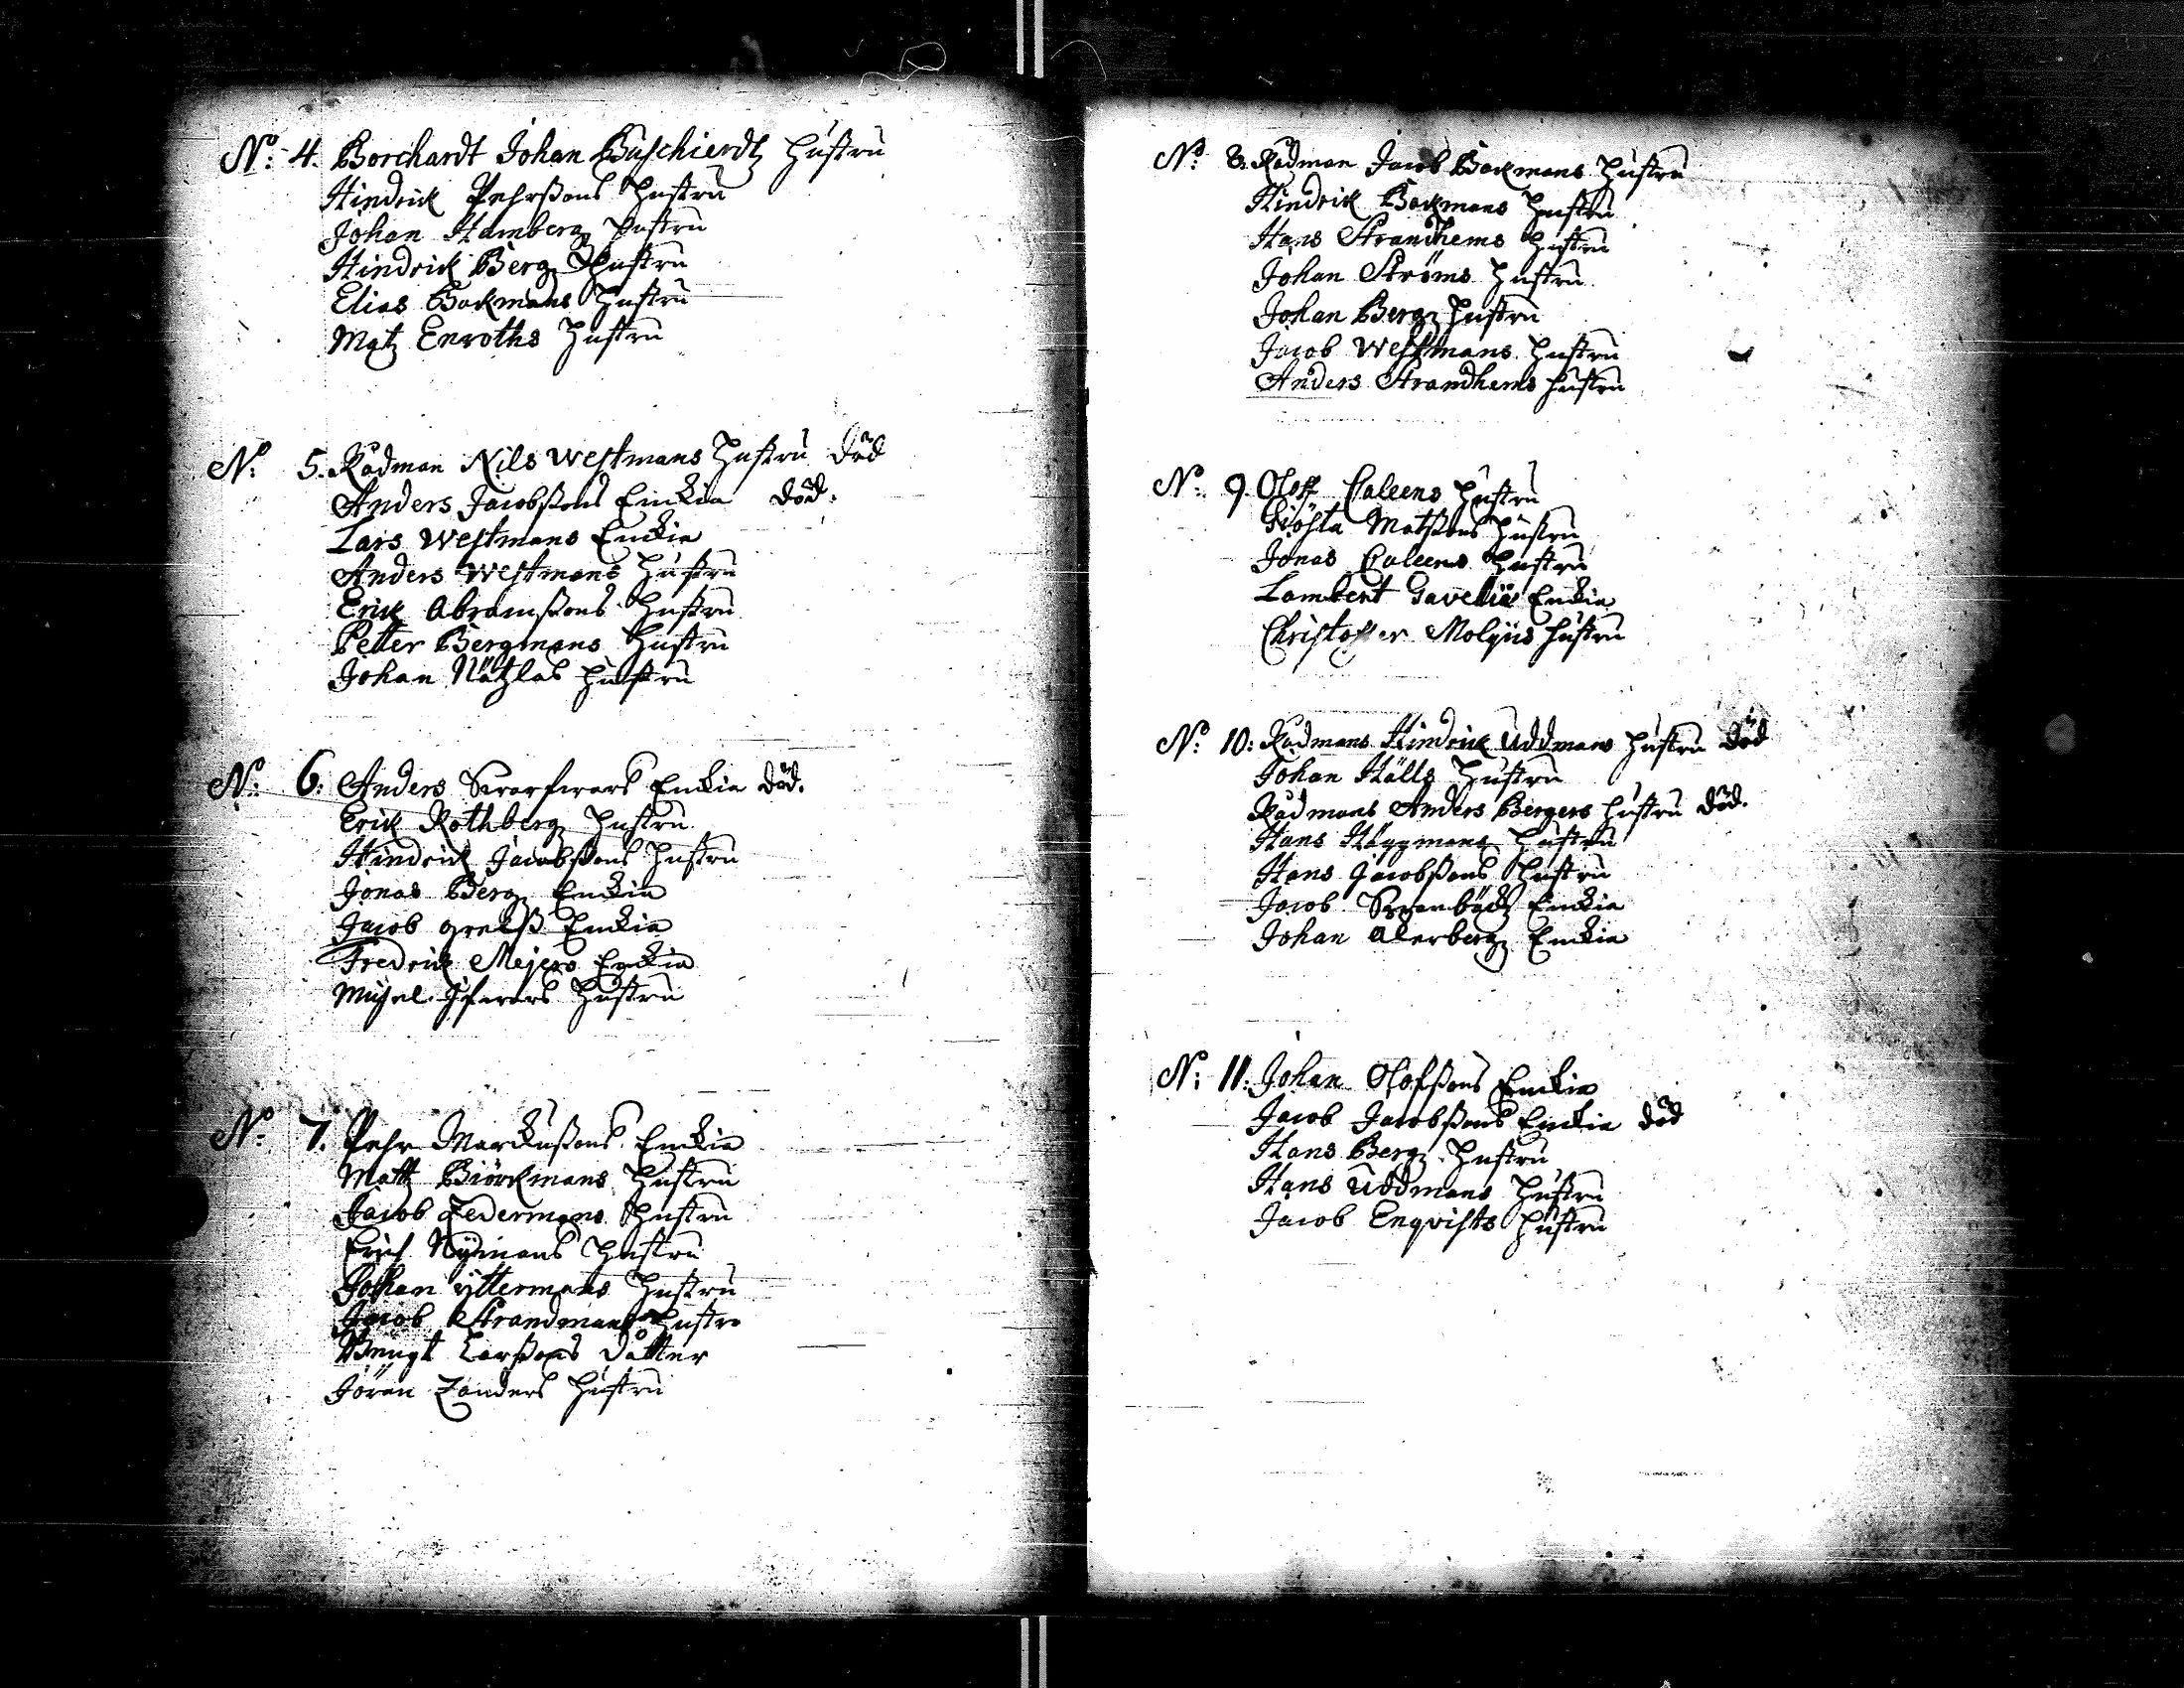 No: 4. Borchardt Johan Buschierdtz Hustru
Hindrick Pehrßons Hustru
Johan Hambergz Hustru
Hindrick Bergz Hustru
Elias Backmans Hustru
Matz Enroths Hustru
No: 5. Rådman Nils Westmans Hustru död
Anders Jacobßons Enckia död.
Lars Westmans Enckia
Anders Westmans Hustru
Erick Abramßons Hustru
Petter Bergmans Hustru
Johan Hustru
No: 6: Anders Enckia död.
Erick Rothbergz Hustru
Hindrick Jacobßons Hustru
Jonas Bergz Enckia
Jacob Grelß Enckia
Fredrick Mejers Enckia
Hustru
No: 7. Pehr Marckußons Enckia
Mattz Biörckmans Hustru
Jacob Zedermans Hustru
Erich Nymans Hustru
Johan Yttermans Hustru
Jacob Strandmans Hustru
Bengt Larßons Dåtter
Jöran Zanders Hustru
No: 8. Rådman Jacob Backmans Hustru
Hindrick Backmans Hustru
Hans Strandhems Hustru
Johan Ströms Hustru
Johan Bergz Hustru
Jacob Westmans Hustru
Anders Strandhems Hustru
No: 9. Oloff Caleens Hustru
Giösta Matßons Hustru
Jonas Caleens Hustru
Lambert Gavelii Enckia
Christoffer Hustru
No: 10: Rådmans Hindrick Uddmans Hustru död
Johan Hälls Hustru
Rådmans Anders Bergers Hustru död.
Hans Häggmans Hustru
Hans Jacobßons Hustru
Jacob Enckia
Johan Alerbergz Enckia
No: 11: Johan Olofßons Enckia
Jacob Jacobßons Enckia död
Hans Bergz Hustru
Hans Uddmans Hustru
Jacob Enqvists Hustru